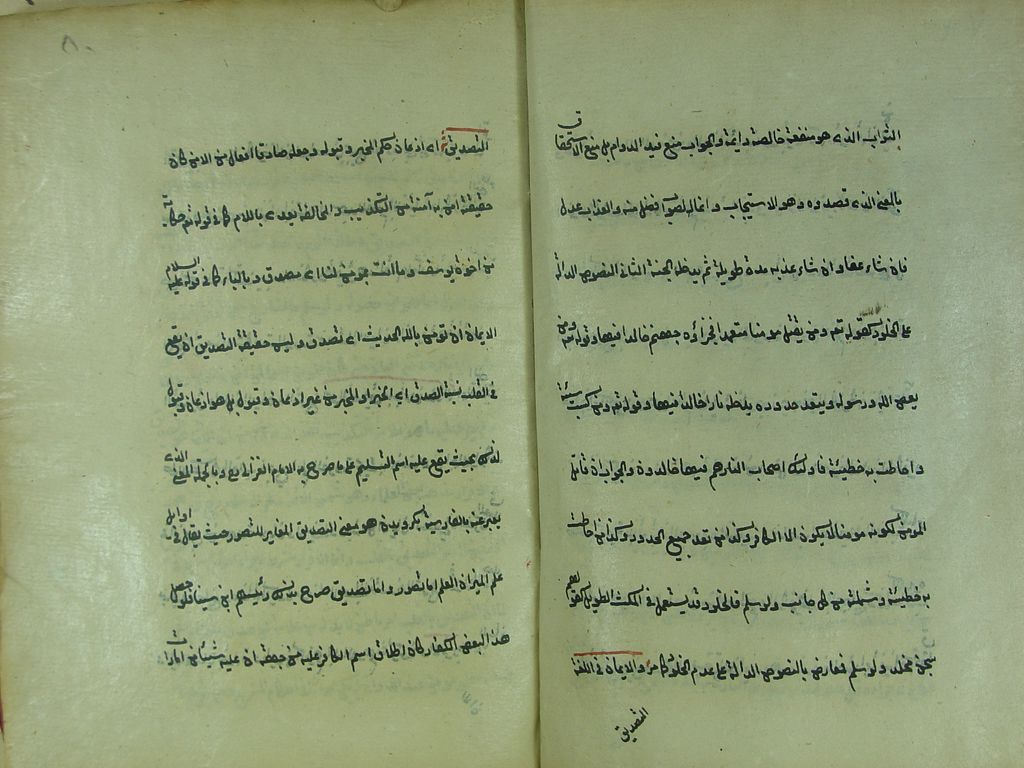 الثواب الذى هو منفعة خالصة دائمة والجواب منع قيد الدوام بل منع الاستحقاق
بالمعنى الذى قصدوه وهو الاستيجاب وانما الثواب فضل منه والعذاب عدل
فان شاء عفا وان شاء عذبه مدة طويلة ثم يدخله الجنة الثانى النصوص الدالة
على الخلود كقوله تعم ومن يقتل مومنا متعمدا فجزاؤه جهنم خالدا فيها وقوله تعم ومن
يعص الله ورسوله ويتعد حدوده يدخله نارا خالدا فيها وقوله تعم من كسب سيئة
واحاطت به خطيئته فاولئك اصحاب النار هم فيها خالدون والجواب ان قاتل
المومن لكونه مومنا لا يكون الا الكافر وكذا من تعد جميع الحدود وكذا من احاطت
به خطيئته وشملته من كل جانب ولو سلم فالخلود قد يستعمل فى المكث الطويل كقولهم
سجن مخلد ولو سلم فمعارض بالنصوص الدالة على عدم الخلود كما مر والايمان فى اللغة
التصديق
٨٠
التصديق اى اذعان حكم المخبر وقبوله وجعله صادقا افعال من الامن كان
حقيقة امن به آمنه من التكذيب والمخالفة يعدى باللام كما فى قوله تعم حكاية
من اخوة يوسف وما انت بمومن لنا اى مصدق وبالباء كما فى قوله عليه السلام
الايمان ان تومن بالله الحديث اى تصدق وليس حقيقة التصديق ان يقع
فى القلب نسبة الصدق الى الخبر او المخبر من غير اذعان وقبول بل هو اذعان وقبول
لذلك بحيث يقع عليه اسم التسليم على ما صرح به الامام الغزالى وبالجملة المعنى الذى
يعبر عنه بالفارسية بكرويدن هو معنى التصديق المقابل للتصور حيث يقال فى اوايل
علم الميزان العلم اما تصور واما تصديق صرح بذلك رئيسهم ابن سينا فلو حصل
هذا لبعض الكفار كان اطلاق اسم الكافر عليه من جهة ان عليه شيئا من امارات